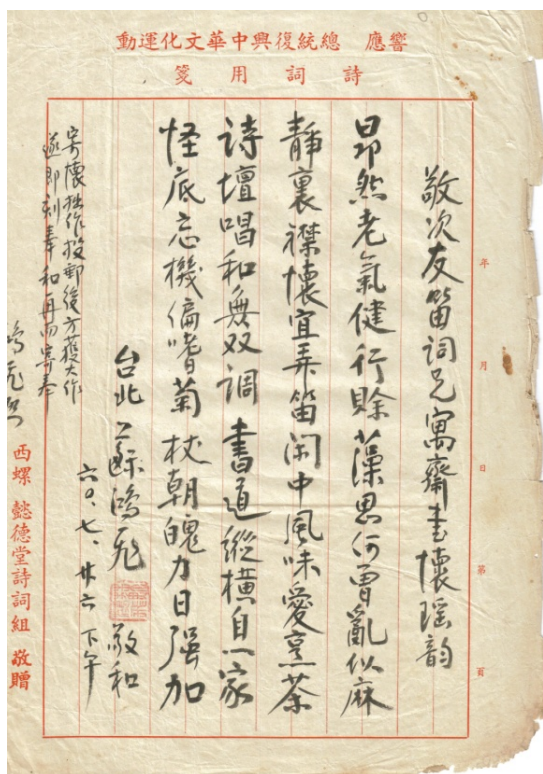 響應 總統復興中華文化運動
詩詞用箋
年 月 日 第 頁
敬次友笛詞兄寓齋書懷瑤韵
昂然老氣健行賒藻思何曾亂似麻
靜裏襟懷宜弄笛閑中風味愛烹茶
詩壇唱和無双調書道縱橫自一家
怪底忘機偏嗜菊杖朝魄力日强加
台北 蘇鴻飛 敬和
六〇、七、廿六 下午
寄懷拙作投郵後方獲大作
遂即刻奉和再四寄奉
鴻飛
西螺 懿德堂詩詞組 敬贈